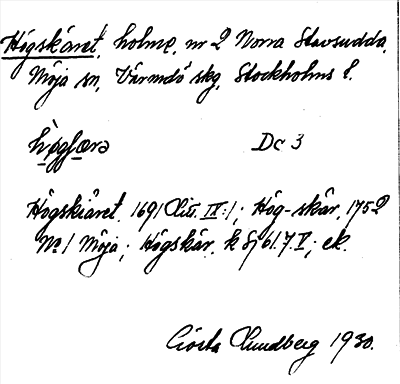 Högskäret, holme, nr 2 Norra Stavsudda,
Möja sn, Värmdö skg, Stockholms l.
Dc 3
Högskiäret 1691 Litt. IX:1; Hög-skär, 1752
No 1 Möja; Högskär, k Sj 61.7.V; ek.
Gösta Lundberg 1930.